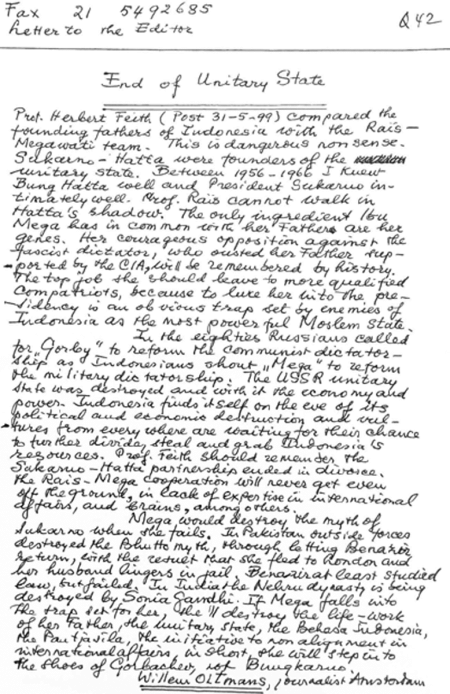 Fax 21 5492685
Letter to the Editor
Q42
End of Unitary State
Prof. Herbert Feith (Post 31-5-99) compared the
founding fathers of Indonesia with the Rais-
Megawati team. This is dangerous nonsense.
Sukarno-Hatta were founders of the
unitary state. Between 1956-1966 I knew
Bung Hatta well and President Sukarno in-
timately well. Prof. Rais cannot walk in
Hatta's shadow. The only ingredient Ibu
Mega has in common with her Father are her
genes. Her courageous opposition against the
fascist dictator, who ousted her Father sup-
ported by the CIA, will be remembered by history.
The "top" job she should leave to more qualified
compatriots, because to lure her into the pre-
sidency is an obvious trap set by enemies of
Indonesia as the most powerful Moslem State.
In the eighties Russians called
for „Gorby" to reform the communist dictator-
ship as Indonesians shout „Mega" to reform
the military dictatorship. The USSR unitary
state was destroyed and with it the economy and
power. Indonesia finds itself on the eve of its
political and economic destruction and vul-
tures from everywhere are waiting for their chance
to further divide, steal and grab Indonesia's
resources. Prof. Feith should remember the
Sukarno-Hatta partnership ended in divorce.
The Rais-Mega cooperation will never get even
off the ground, in lack of expertise in international
affairs, and brains, among others.
Mega would destroy the myth of
Sukarno when she fails. In Pakistan outside forces
destroyed the Bhutto myth, through letting Benazir
return, with the result that she fled to London and
her husband lingers in jail. Benazir at least studied
law, but failed. In India the Nehru dynasty is being
destroyed by Sonia Gandhi. If Mega falls into
the trap set for her, she'll destroy the life-work
of her Father, the unitary state, the Bahasa Indonesia,
the Pantjasila, the initiative to non alignment in
international affairs, in short, she will step into
the shoes of Gorbachev, not Bungkarno.
Willem Oltmans, journalist Amsterdam